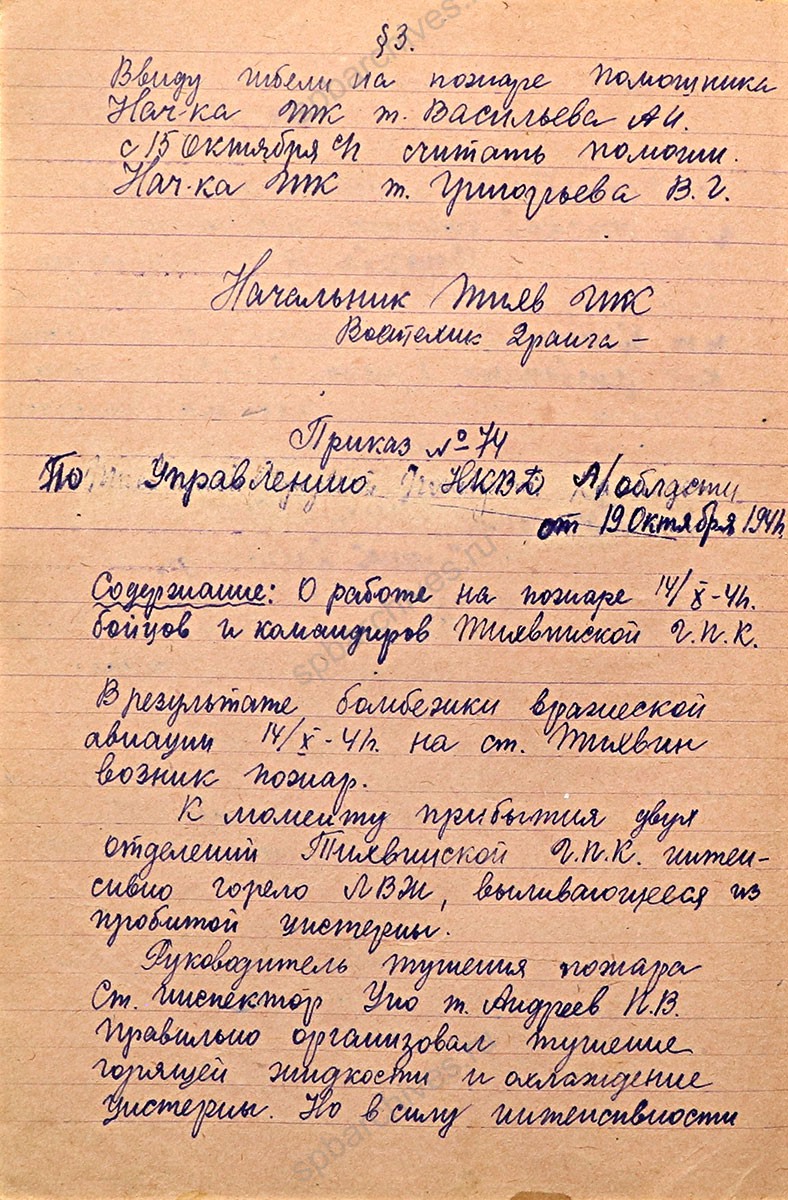 §3.
Ввиду гибели на пожаре помощника
Нач-ка ГПК т. Васильева А.И.
с 15 Октября с/г считать помощн.
Нач-ка ГПК т. Григорьева В.Г.
Начальник Тихв ГПК
Воентехник 2 ранга –
Приказ № 74
По Управлению НКВД Л/области
от 19 Октября 1941г.
Содержание: О работе на пожаре 14/X-41г.
бойцов и командиров Тихвинской Г.П.К.
В результате бомбежки вражеской
авиации 14/X-41г. на ст. Тихвин
возник пожар.
К моменту прибытия двух
отделений Тихвинской Г.П.К. интен-
сивно горело ЛВЖ, выливающееся из
пробитой цистерны.
Руководитель тушения пожара
Ст. инспектор Упо т. Андреев П.В.
правильно организовал тушение
горящей жидкости и охлаждение
цистерны. Но в силу интенсивности
spbarchives.ru
spbarchives.ru
spbarchives.ru